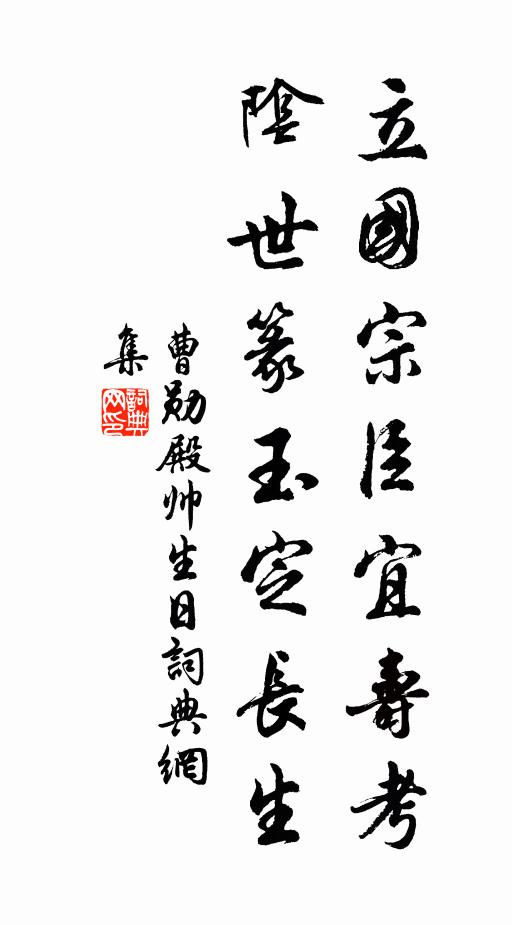 立國宗臣宜壽考
陰世篆玉定長生
曹勛殿帅生日詞典網
集
詞典
网印